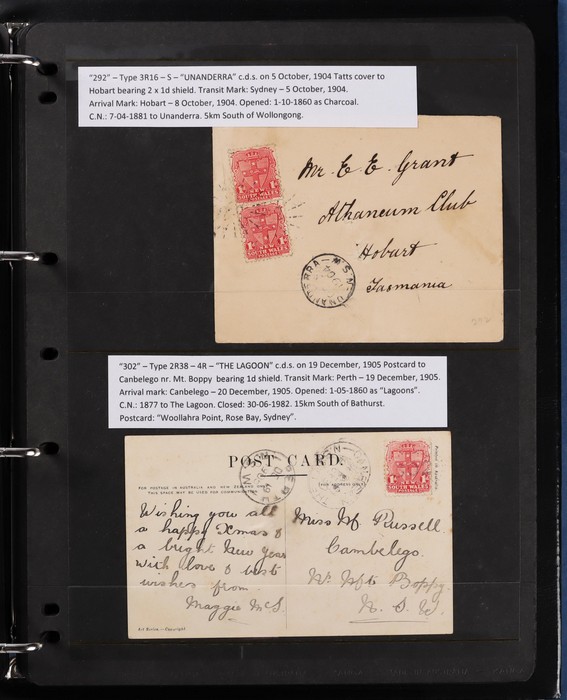 "292" – Type 3R16 – S – "UNANDERRA" c.d.s. on 5 October, 1904 Tatts cover to
Hobart bearing 2 x 1d shield. Transit Mark: Sydney – 5 October, 1904.
Arrival Mark: Hobart – 8 October, 1904. Opened: 1-10-1860 as Charcoal.
C.N.: 7-04-1881 to Unanderra. 5km South of Wollongong.
Mr. E. E. Grant
Athaneum Club
Hobart
Tasmania
UNANDERRA – N.S.W
SOUTH WALES
"302" – Type 2R38 – 4R – "THE LAGOON" c.d.s. on 19 December, 1905 Postcard to
Canbelego nr. Mt. Boppy bearing 1d shield. Transit Mark: Perth – 19 December, 1905.
Arrival mark: Canbelego – 20 December, 1905. Opened: 1-05-1860 as "Lagoons".
C.N.: 1877 to The Lagoon. Closed: 30-06-1982. 15km South of Bathurst.
Postcard: "Woollahra Point, Rose Bay, Sydney".
POST CARD.
Wishing you all
a happy Xmas &
a bright New Year
with love & best
wishes from
Maggie McS.
Miss M. Russell
Cambelego.
Nr. Mt Boppy
N. S. W.
SOUTH WALES